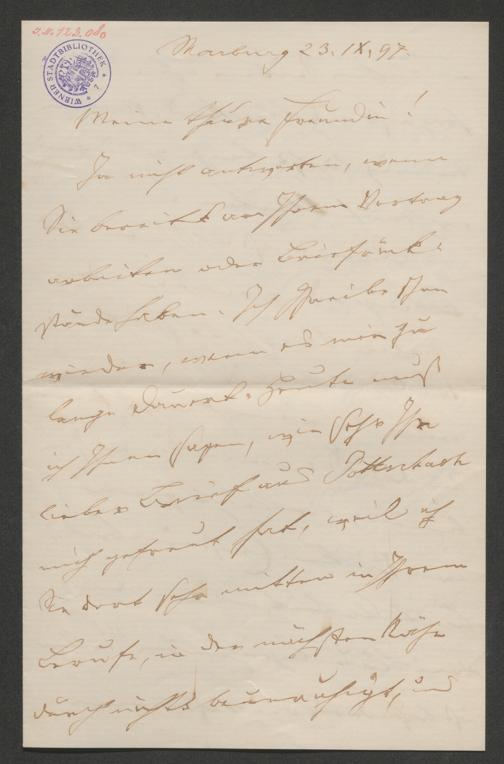 I.N. 123.080
WIENER STADTBIBLIOTHEK
Marburg 23. IX. 97
Meine theure Freundin!
Ja nicht antworten, wenn
Sie bereits an Ihrem Vortrag
arbeiten oder Briefrück-
stände haben. Ich schreibe schon
wieder, wenn es mir zu
lange dauert. Heute muß
ich Ihnen sagen, wie sehr Ihr
lieber Brief aus Pottschach
mich gefreut hat, weil ich
Sie dort sehe mitten in Ihrem
Berufe, in der nächsten Nähe
durch nichts beunruhigt, und